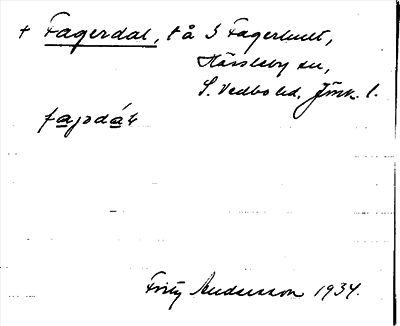 + Fagerdal, t å S Fagerhult,
Hässleby sn,
S. Vedbo hd, Jönk. l.
fajədál
Fritz Andersson 1934.